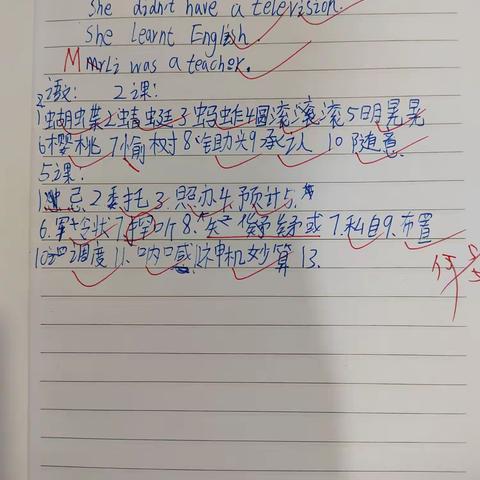 She didn't have a television.
She learnt English.
Mr Li was a teacher.
2语文: 2课:
1蝴蝶 2蜻蜓 3蚂蚱 4圆滚滚滚 5明晃晃
6樱桃 7 树 8 助兴 9承认 10随意
5课:
1 忌 2委托 3照办 4预计 5.
6.军令状 7探听 8. 或 7.私自 9.布置
10调度 11.呐 12神机妙算 13.